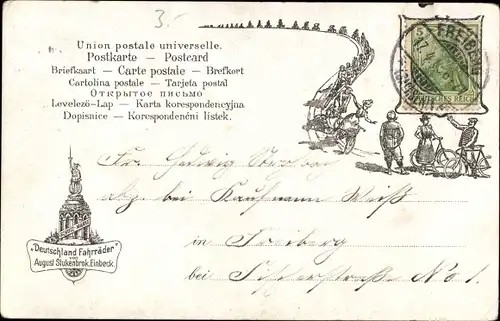 3.-
Union postale universelle.
Postkarte — Postcard
Briefkaart — Carte postale — Brefkort
Cartolina postale — Tarjeta postal
Открытое письмо
Levelező-Lap — Karta korespondencyjna
Dopisnice — Korespondenční lístek.
FREIBERG
DEUTSCHES REICH
Hedwig
bei Kaufmann Weiß
in Freiberg
bei No 1.
"Deutschland Fahrräder"
August Stukenbrok, Einbeck.